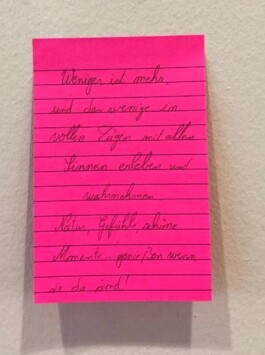 Weniger ist mehr,
und das wenige in
vollen Zügen mit allen
Sinnen erleben und
wahrnehmen.
Natur, Gefühle, schöne
Momente... genießen wenn
sie da sind!